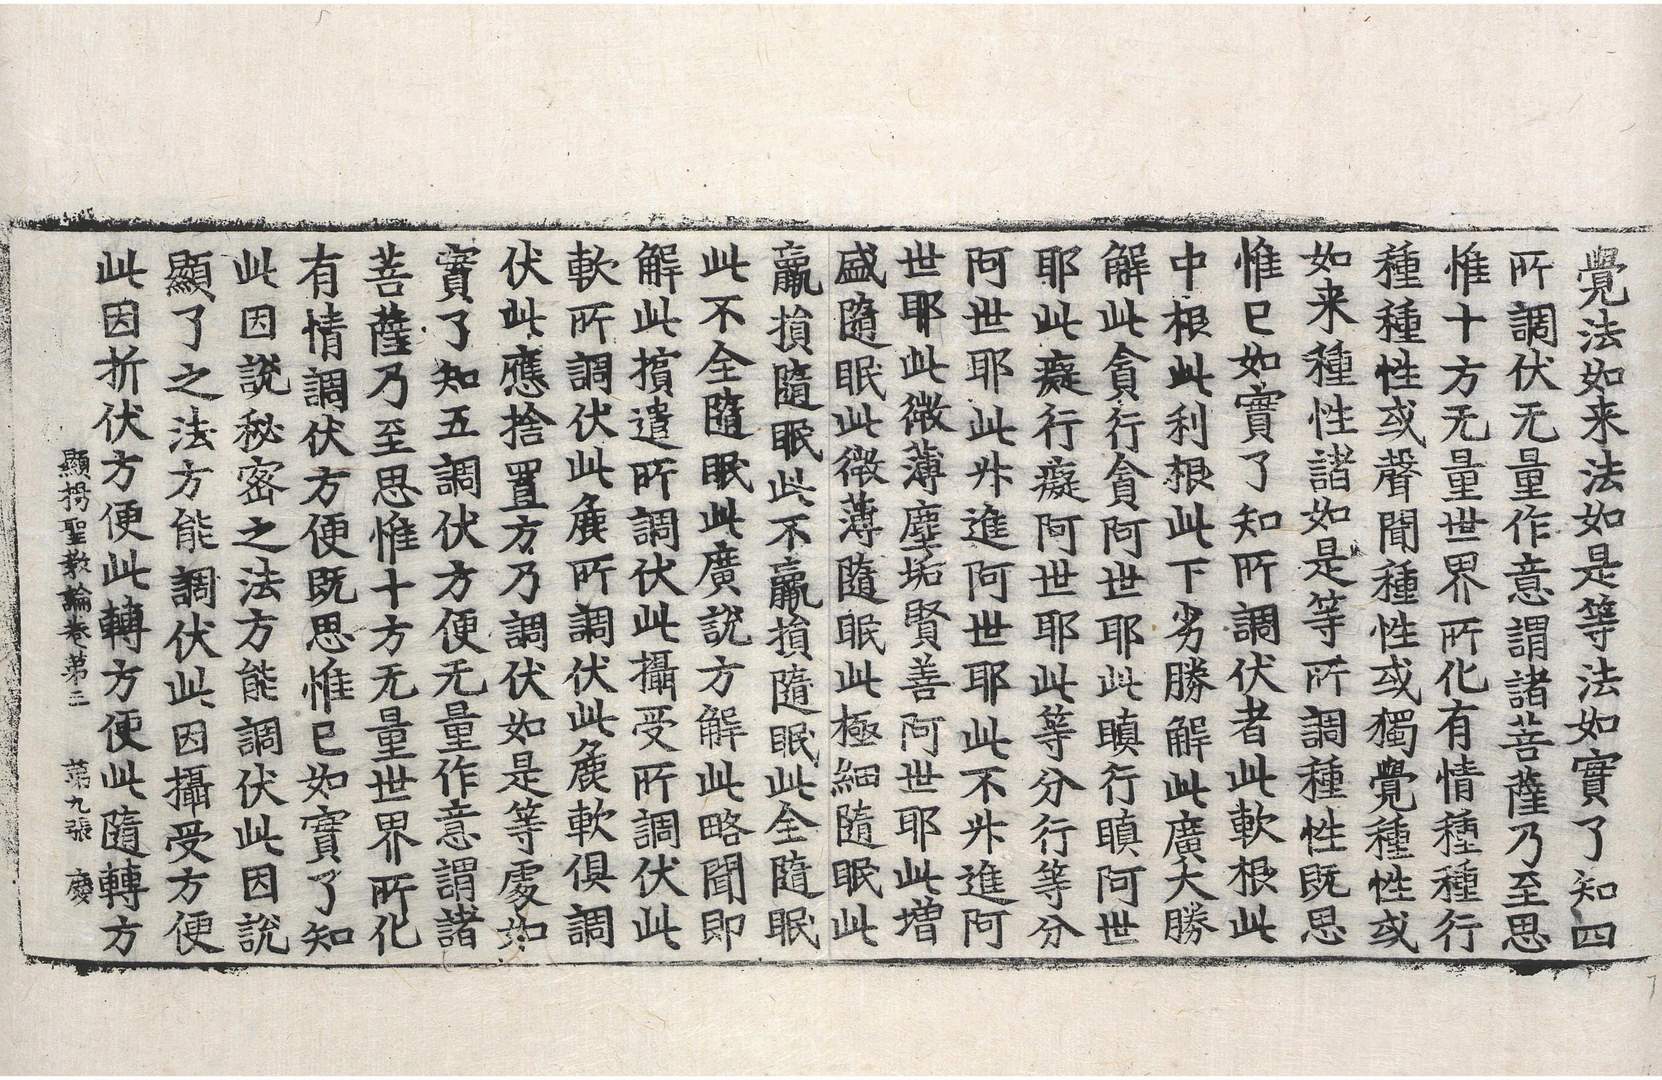 覺法如来法如是等法如實了知四
所調伏无量作意謂諸菩薩乃至思
惟十方无量世界所化有情種種行
種種性或聲聞種性或獨覺種性或
如来種性諸如是等所調種性旣思
惟已如實了知所調伏者此軟根此
中根此利根此下劣勝解此廣大勝
解此貪行貪阿世耶此瞋行瞋阿世
耶此癡行癡阿世耶此等分行等分
阿世耶此升進阿世耶此不升進阿
世耶此微薄塵垢賢善阿世耶此增
盛隨眠此微薄隨眠此極細隨眠此
羸損隨眠此不羸損隨眠此全隨眠
此不全隨眠此廣說方解此略聞即
解此擯遣所調伏此攝受所調伏此
軟所調伏此麁所調伏此麁軟俱調
伏此應捨置方乃調伏如是等處如
實了知五調伏方便无量作意謂諸
菩薩乃至思惟十方无量世界所化
有情調伏方便旣思惟已如實了知
此因說秘密之法方能調伏此因說
顯了之法方能調伏此因攝受方便
此因折伏方便此轉方便此隨轉方
顯揚聖教論卷第三　第九張　慶